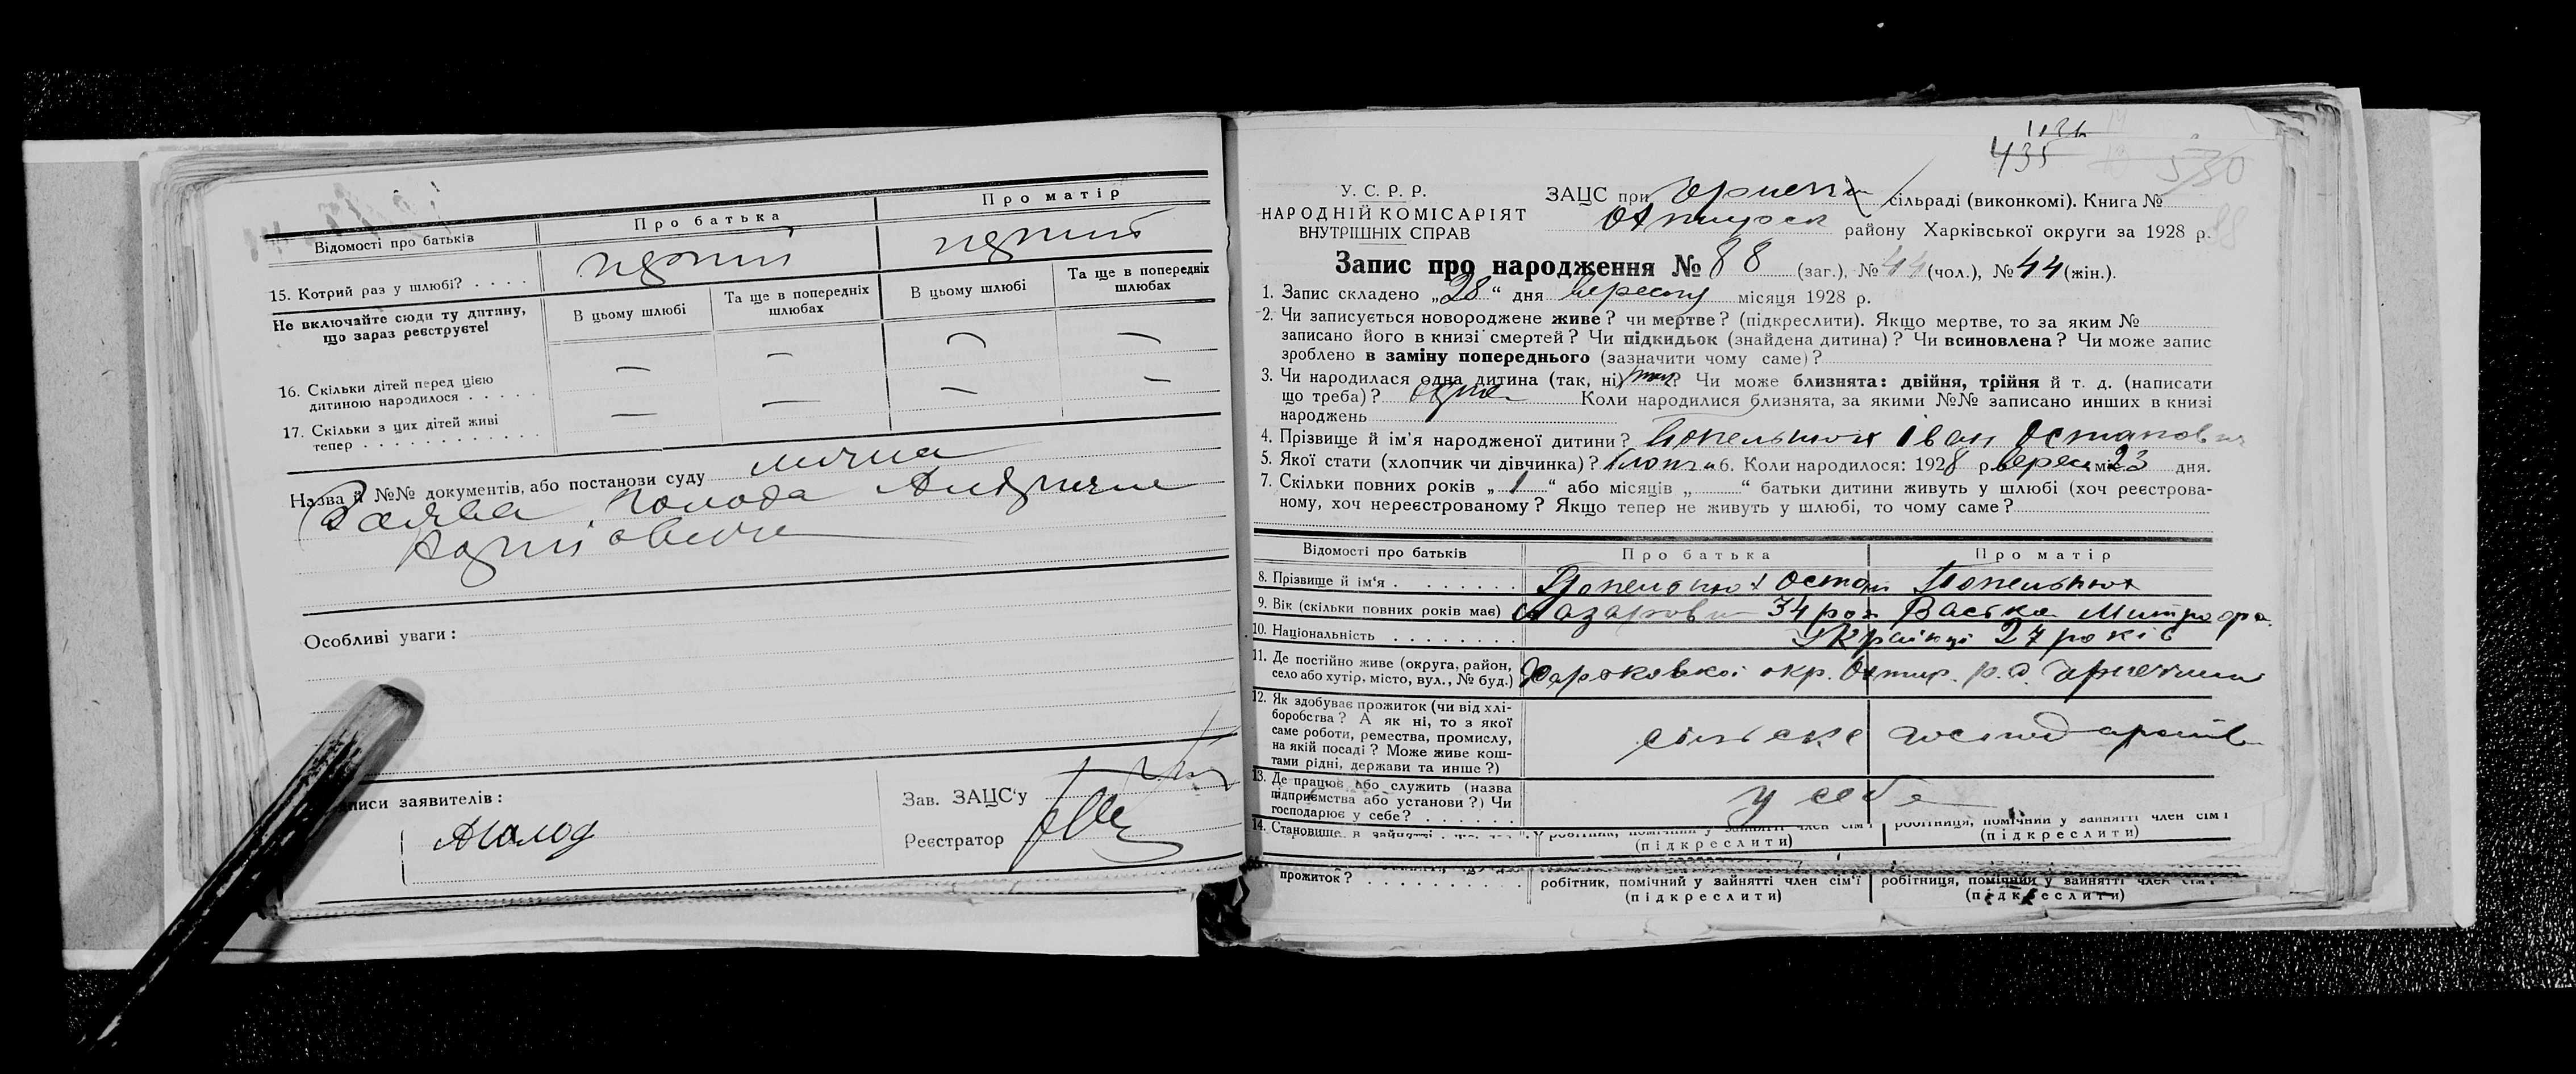 Відомості про батьків
Про батька
Про матір
15. Котрий раз у шлюбі? . . . .
Не включайте сюди ту дитину,
що зараз реєструєте!
В цьому шлюбі
Та ще в попередніх
шлюбах
В цьому шлюбі
Та ще в попередніх
шлюбах
16. Скільки дітей перед цією
дитиною народилося . . . . .
— — — —
17. Скільки з цих дітей живі
тепер . . . . . . . . . . . .
— — — —
Назва й №№ документів, або постанови суду
Особливі уваги:
писи заявителів:
Зав. ЗАЦС'у
Реєстратор
1136
435
530
У. С. Р. Р.
НАРОДНІЙ КОМІСАРІЯТ
ВНУТРІШНІХ СПРАВ
ЗАЦС при сільраді (виконкомі). Книга №
району Харківської округи за 1928 р.
88
Запис про народження № 88 (заг.), № 44 (чол.), № 44 (жін.).
1. Запис складено „28“ дня вересня місяця 1928 р.
2. Чи записується новороджене живе? чи мертве? (підкреслити). Якщо мертве, то за яким №
записано його в книзі смертей? Чи підкидьок (знайдена дитина)? Чи всиновлена? Чи може запис
зроблено в заміну попереднього (зазначити чому саме)?
3. Чи народилася одна дитина (так, ні) так? Чи може близнята: двійня, трійня й т. д. (написати
що треба)? одна Коли народилися близнята, за якими №№ записано инших в книзі
народжень
4. Прізвище й ім'я народженої дитини? Попельнюх Іван Остапович
5. Якої стати (хлопчик чи дівчинка)? Хлопч 6. Коли народилося: 1928 р. верес м. 23 дня.
7. Скільки повних років „1“ або місяців „ “ батьки дитини живуть у шлюбі (хоч реєстрова-
ному, хоч нереєстрованому? Якщо тепер не живуть у шлюбі, то чому саме?
Відомості про батьків
Про батька
Про матір
8. Прізвище й ім'я . . . . . . . . Попельнюх Остап Попельнюх
9. Вік (скільки повних років має) Лазарович 34 рок Васька Митрофа.
10. Національність . . . . . . . . Українці 27 років
11. Де постійно живе (округа, район,
село або хутір, місто, вул., № буд.)
Харковської окр. Охтир. р.
12. Як здобуває прожиток (чи від хлі-
боробства? А як ні, то з якої
саме роботи, ремества, промислу,
на якій посаді? Може живе кош-
тами рідні, держави та инше?)
сільске господарство
13. Де працює або служить (назва
підприємства або установи?) Чи
господарює у себе? . . . . . .
у себе
14. Становище в занятті
робітник, помічний у зайнятті член сім'ї
(підкреслити)
робітниця, помічний у зайнятті член сім'ї
(підкреслити)
прожиток? . . . . . . . . . .
робітник, помічний у зайнятті член сім'ї
(підкреслити)
робітниця, помічний у зайнятті член сім'ї
(підкреслити)